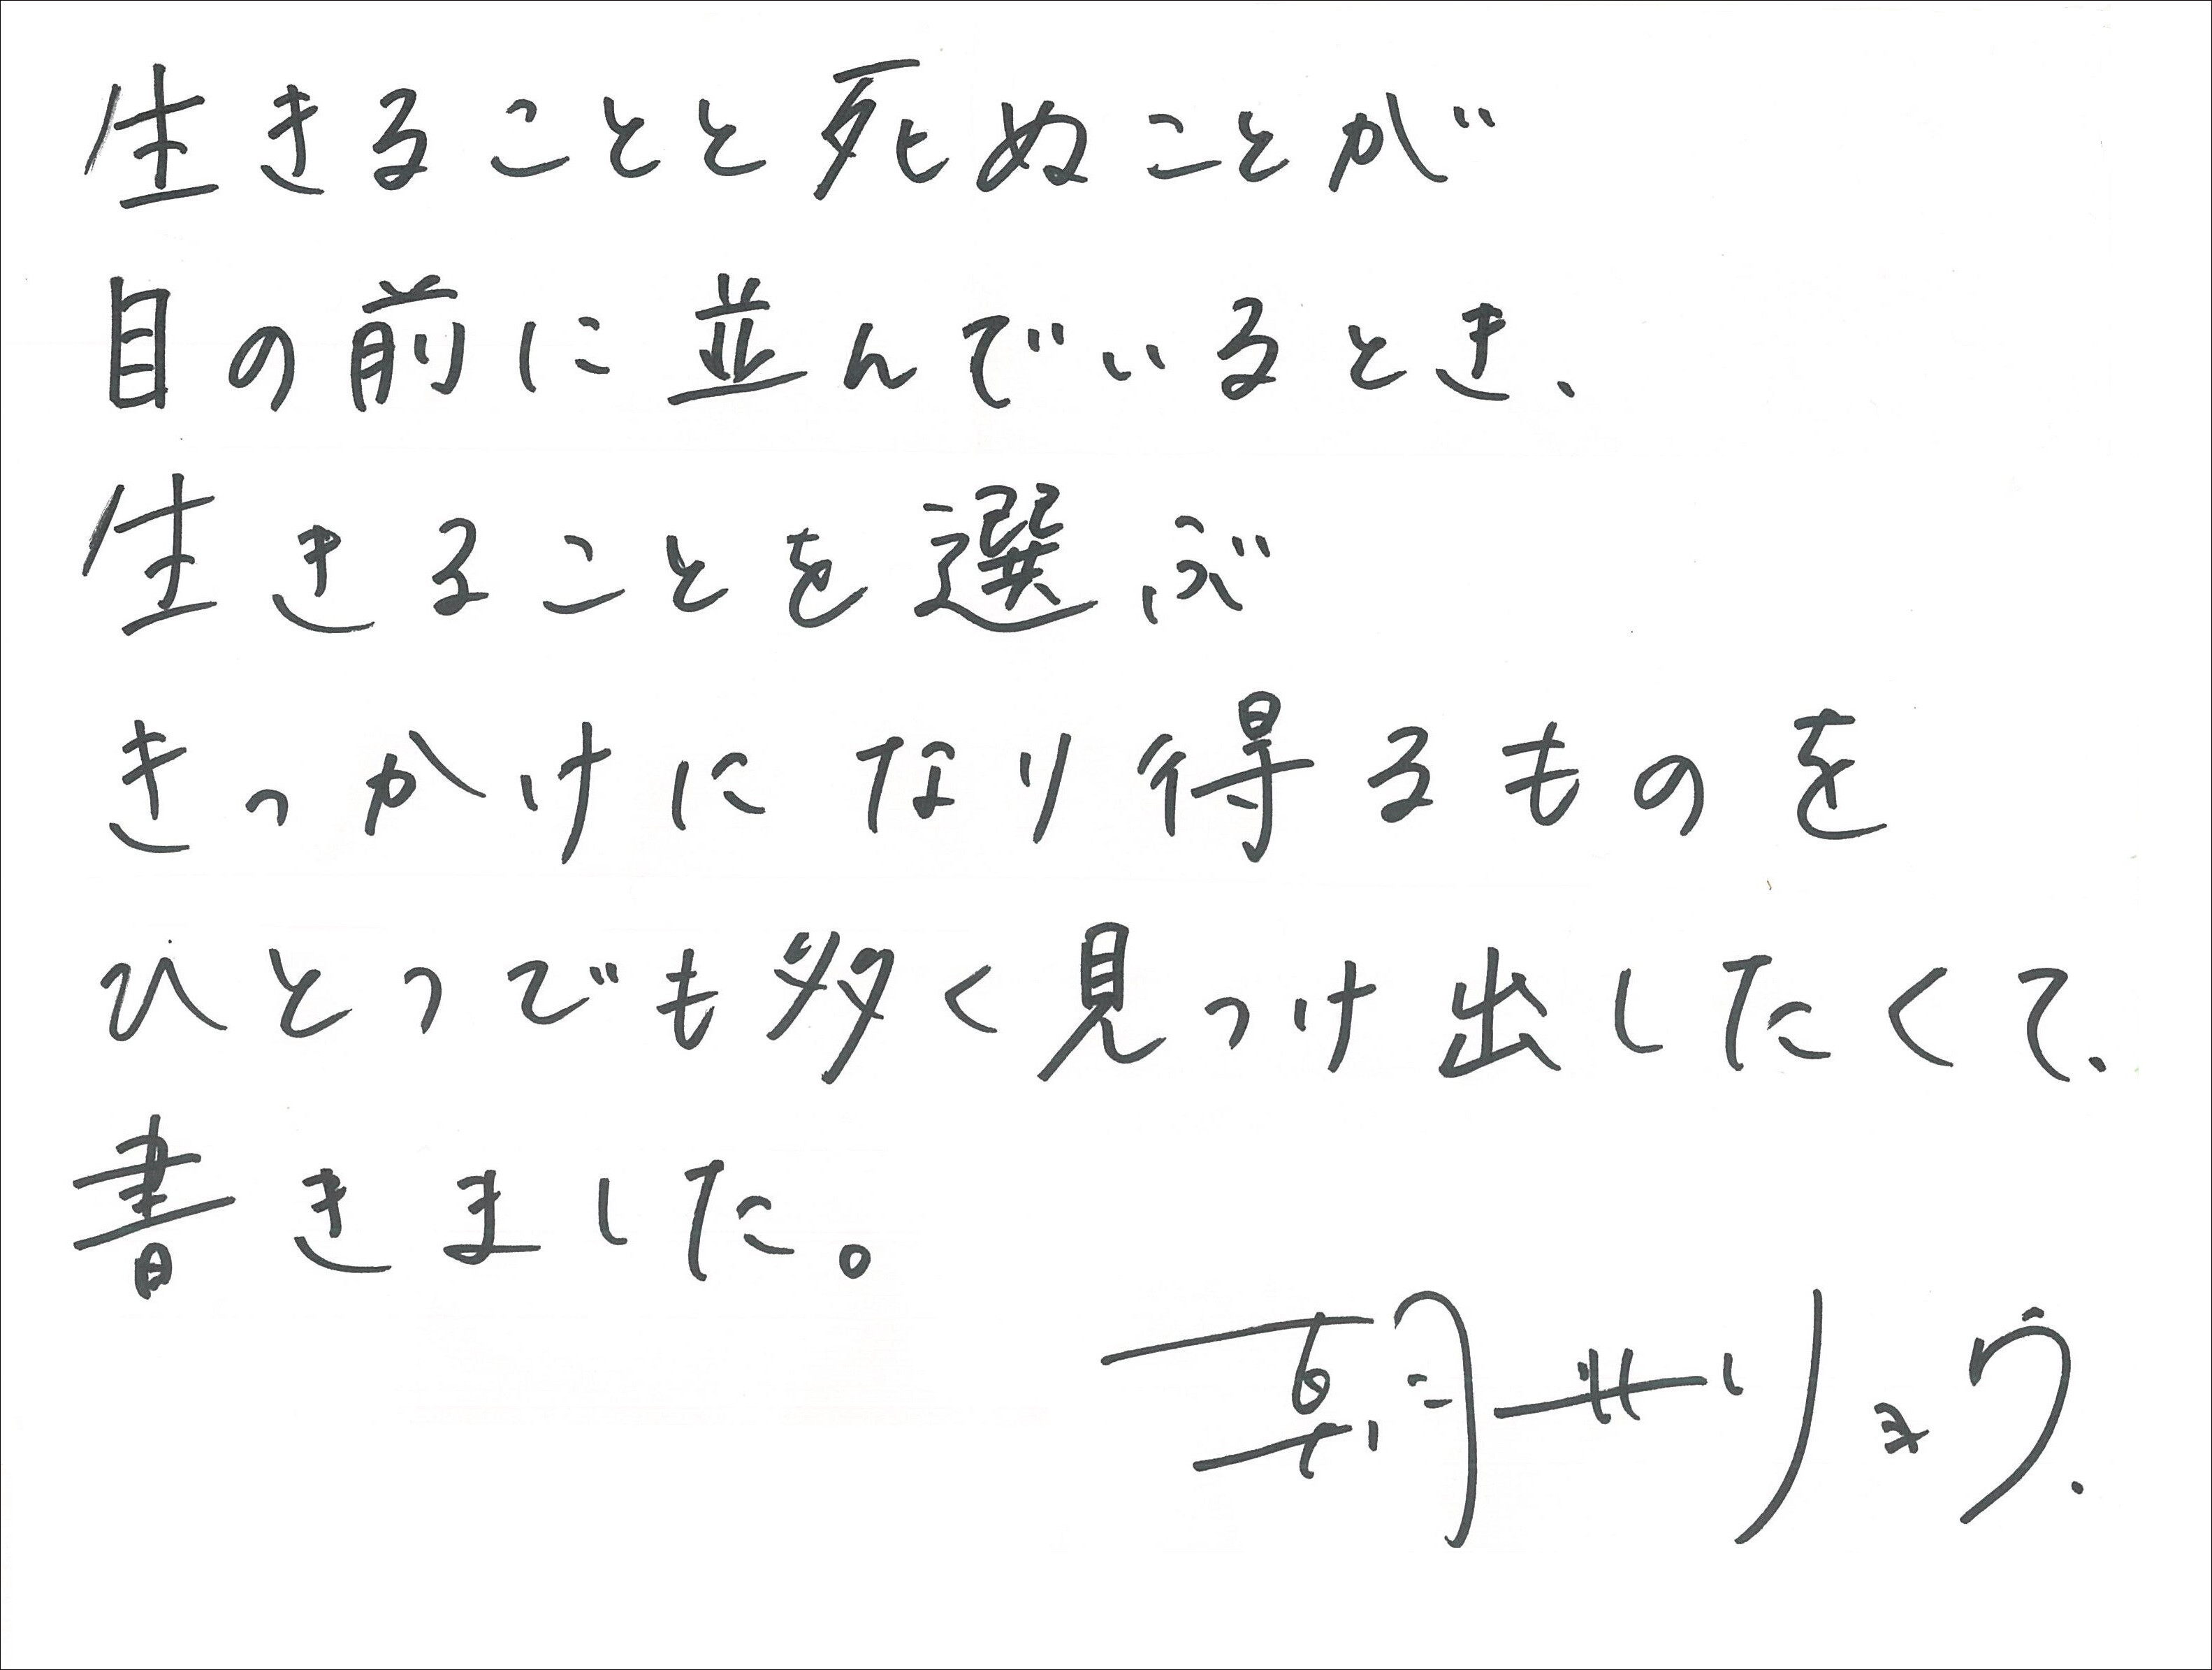 生きることと死ぬことが
目の前に並んでいるとき、
生きることを選ぶ
きっかけになり得るものを
ひとつでも多く見つけ出したくて、
書きました。
朝井リョウ.